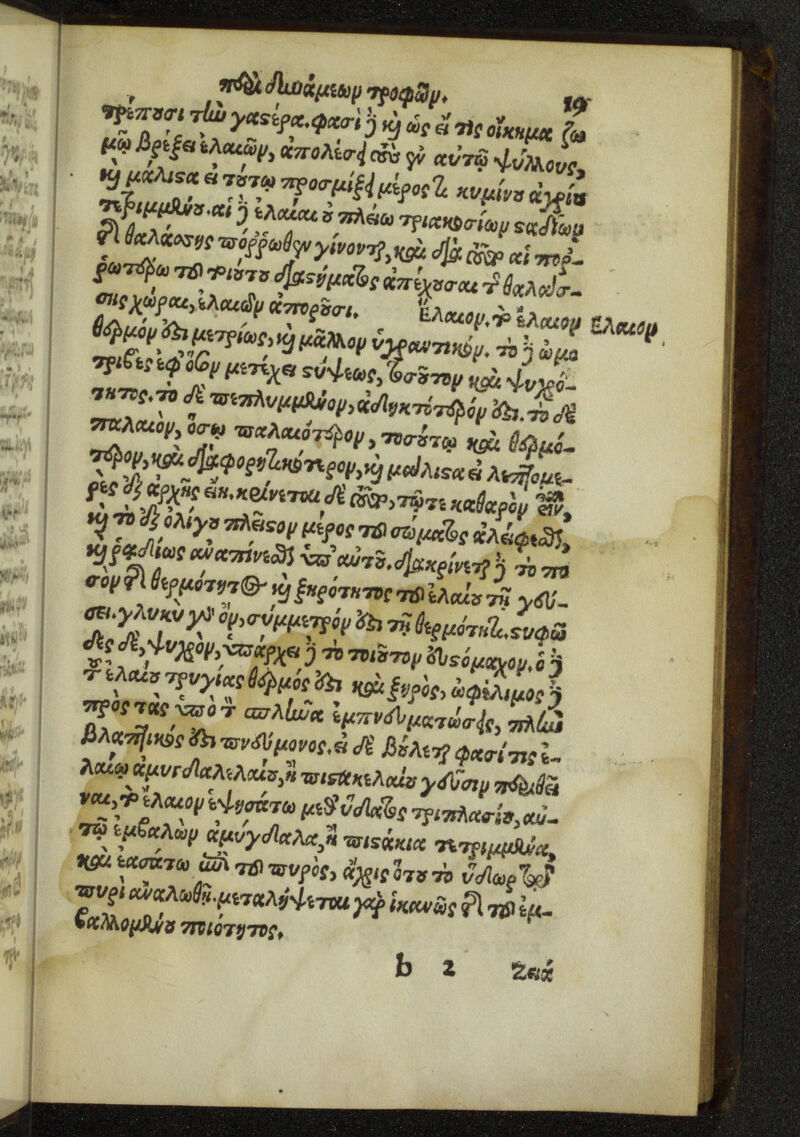 περὶ δυνάμεων τροφῶν. 19
τρέπουσι τὴν γαστέρα. φασὶ δὲ καὶ ὡς εἴ τις οἴκημα ζω
μῷ βρέξει ἐλαιῶν, ἀπολέσει τοὺς ἐν αὐτῷ ψύλλους,
καὶ μάλιστα εἰ τούτῳ προσμίξει μέρος τι κυμίνου ἀγρίου
τετριμμένου. αἱ δὲ ἐλαῖαι οὐ πλείω τριακοσίων σταδίων
τῆς θαλάσσης πόρρωθεν γίνονται, καὶ διὰ τοῦτο αἱ πορ-
ρωτέρω τοῦ τοιούτου διαστήματος ἀπέχουσαι τῆς θαλάσ-
σης χῶραι, ἐλαιῶν ἀποροῦσι. Ἔλαιον. τὸ ἔλαιον
Ἔλαιον
θερμόν ἐστι μετρίως, καὶ μᾶλλον ὑγραντικόν. τὸ δὲ ὠμο
τριβὲς ἐφ' ὅσον μετέχει στύψεως, τοσοῦτον καὶ ψυχρό-
τητος. τὸ δὲ πεπλυμμένον, ἀδηκτότερόν ἐστι. τὸ δὲ
παλαιόν, ὅσῳ παλαιότερον, τοσούτῳ καὶ θερμό-
τερον, καὶ διαφορητικότερον, καὶ μάλιστα εἰ λεπτομε-
ρὲς ἐξ ἀρχῆς εἴη. κρίνεται δὲ τοῦτο, τῷ τε καθαρὸν εἶναι,
καὶ τὸ ἐξ ὀλίγου πλεῖστον μέρος τοῦ σώματος ἀλείφεσθαι,
καὶ ῥᾳδίως ἀναπίνεσθαι ὑπ' αὐτοῦ. διακρίνεται δὲ τὸ πο
σὸν τῆς θερμότητος καὶ ξηρότητος τοῦ ἐλαίου τῇ γεύ-
σει. γλυκὺ γὰρ ὂν, σύμμετρόν ἐστι τῇ θερμότητι. στυφῶ
δες δὲ, ψυχρὸν, ὑπάρχει δὲ τὸ τοιοῦτον εὐστόμαχον. ὁ δὲ
τοῦ ἐλαίου τρυγίας θερμός ἐστι καὶ ξηρὸς, ὠφέλιμος δὲ
πρὸς τὰς ὑπὸ τὸν σπλῆνα ἐμπνευματώσεις, πλὴν
βλαπτικός ἐστι πνεύμονος. εἰ δὲ βούλεται φασί τις ἐ-
λαίῳ ἀμυγδαλελαίου, ἢ πιστακελαίου γεῦσιν περιθεῖ
ναι, τὸ ἔλαιον ἑψησάτω μεθ' ὕδατος τριπλασίου, αὐ-
τῷ ἐμβαλὼν ἀμύγδαλα, ἢ πιστάκια τετριμμένα,
καὶ ἐασάτω ἐπὶ τοῦ πυρὸς, ἄχρις ὅτου τὸ ὕδωρ τῷ
πυρὶ ἀναλωθῇ. μεταλήψεται γὰρ ἱκανῶς τῆς τοῦ ἐμ-
βαλλομένου ποιότητος.
b 2 Ζειά